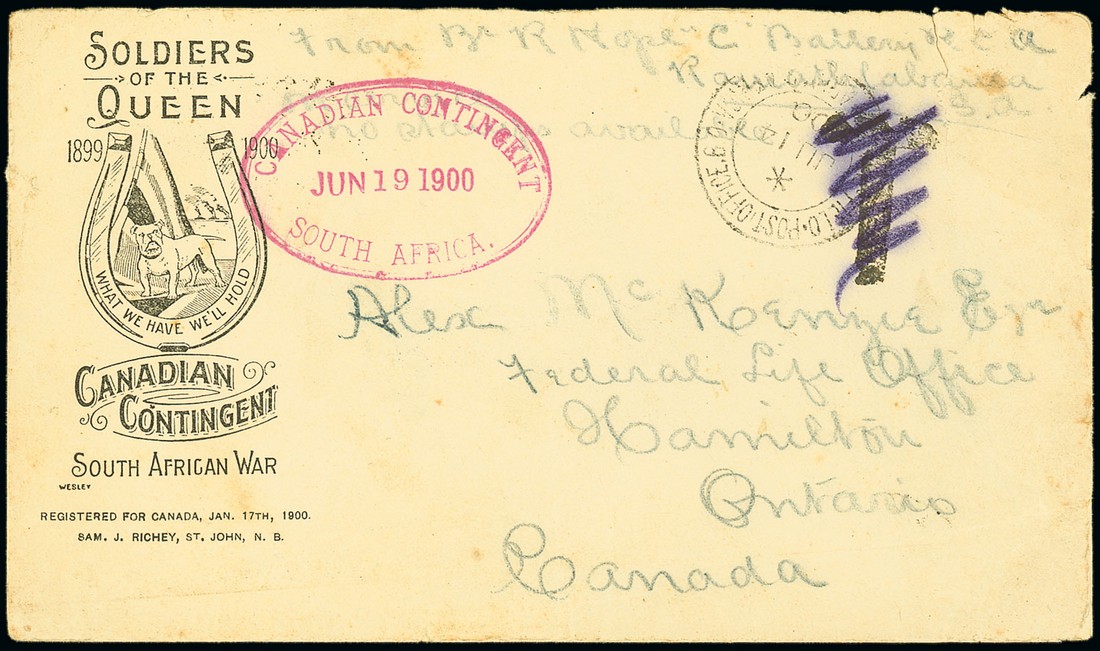 SOLDIERS
OF THE
QUEEN
1899 1900
WHAT WE HAVE WE'LL HOLD
CANADIAN
CONTINGENT
SOUTH AFRICAN WAR
WESLEY
REGISTERED FOR CANADA, JAN. 17TH, 1900.
SAM. J. RICHEY, ST. JOHN, N. B.
From Br R Hope "C" Battery R C A
S.A
no stamps available
CANADIAN CONTINGENT
JUN 19 1900
SOUTH AFRICA.
FIELD·POST OFFICE·B.O
JU 12
00
T
Alex Mc Kenzie Esq
Federal Life Office
Hamilton
Ontario
Canada